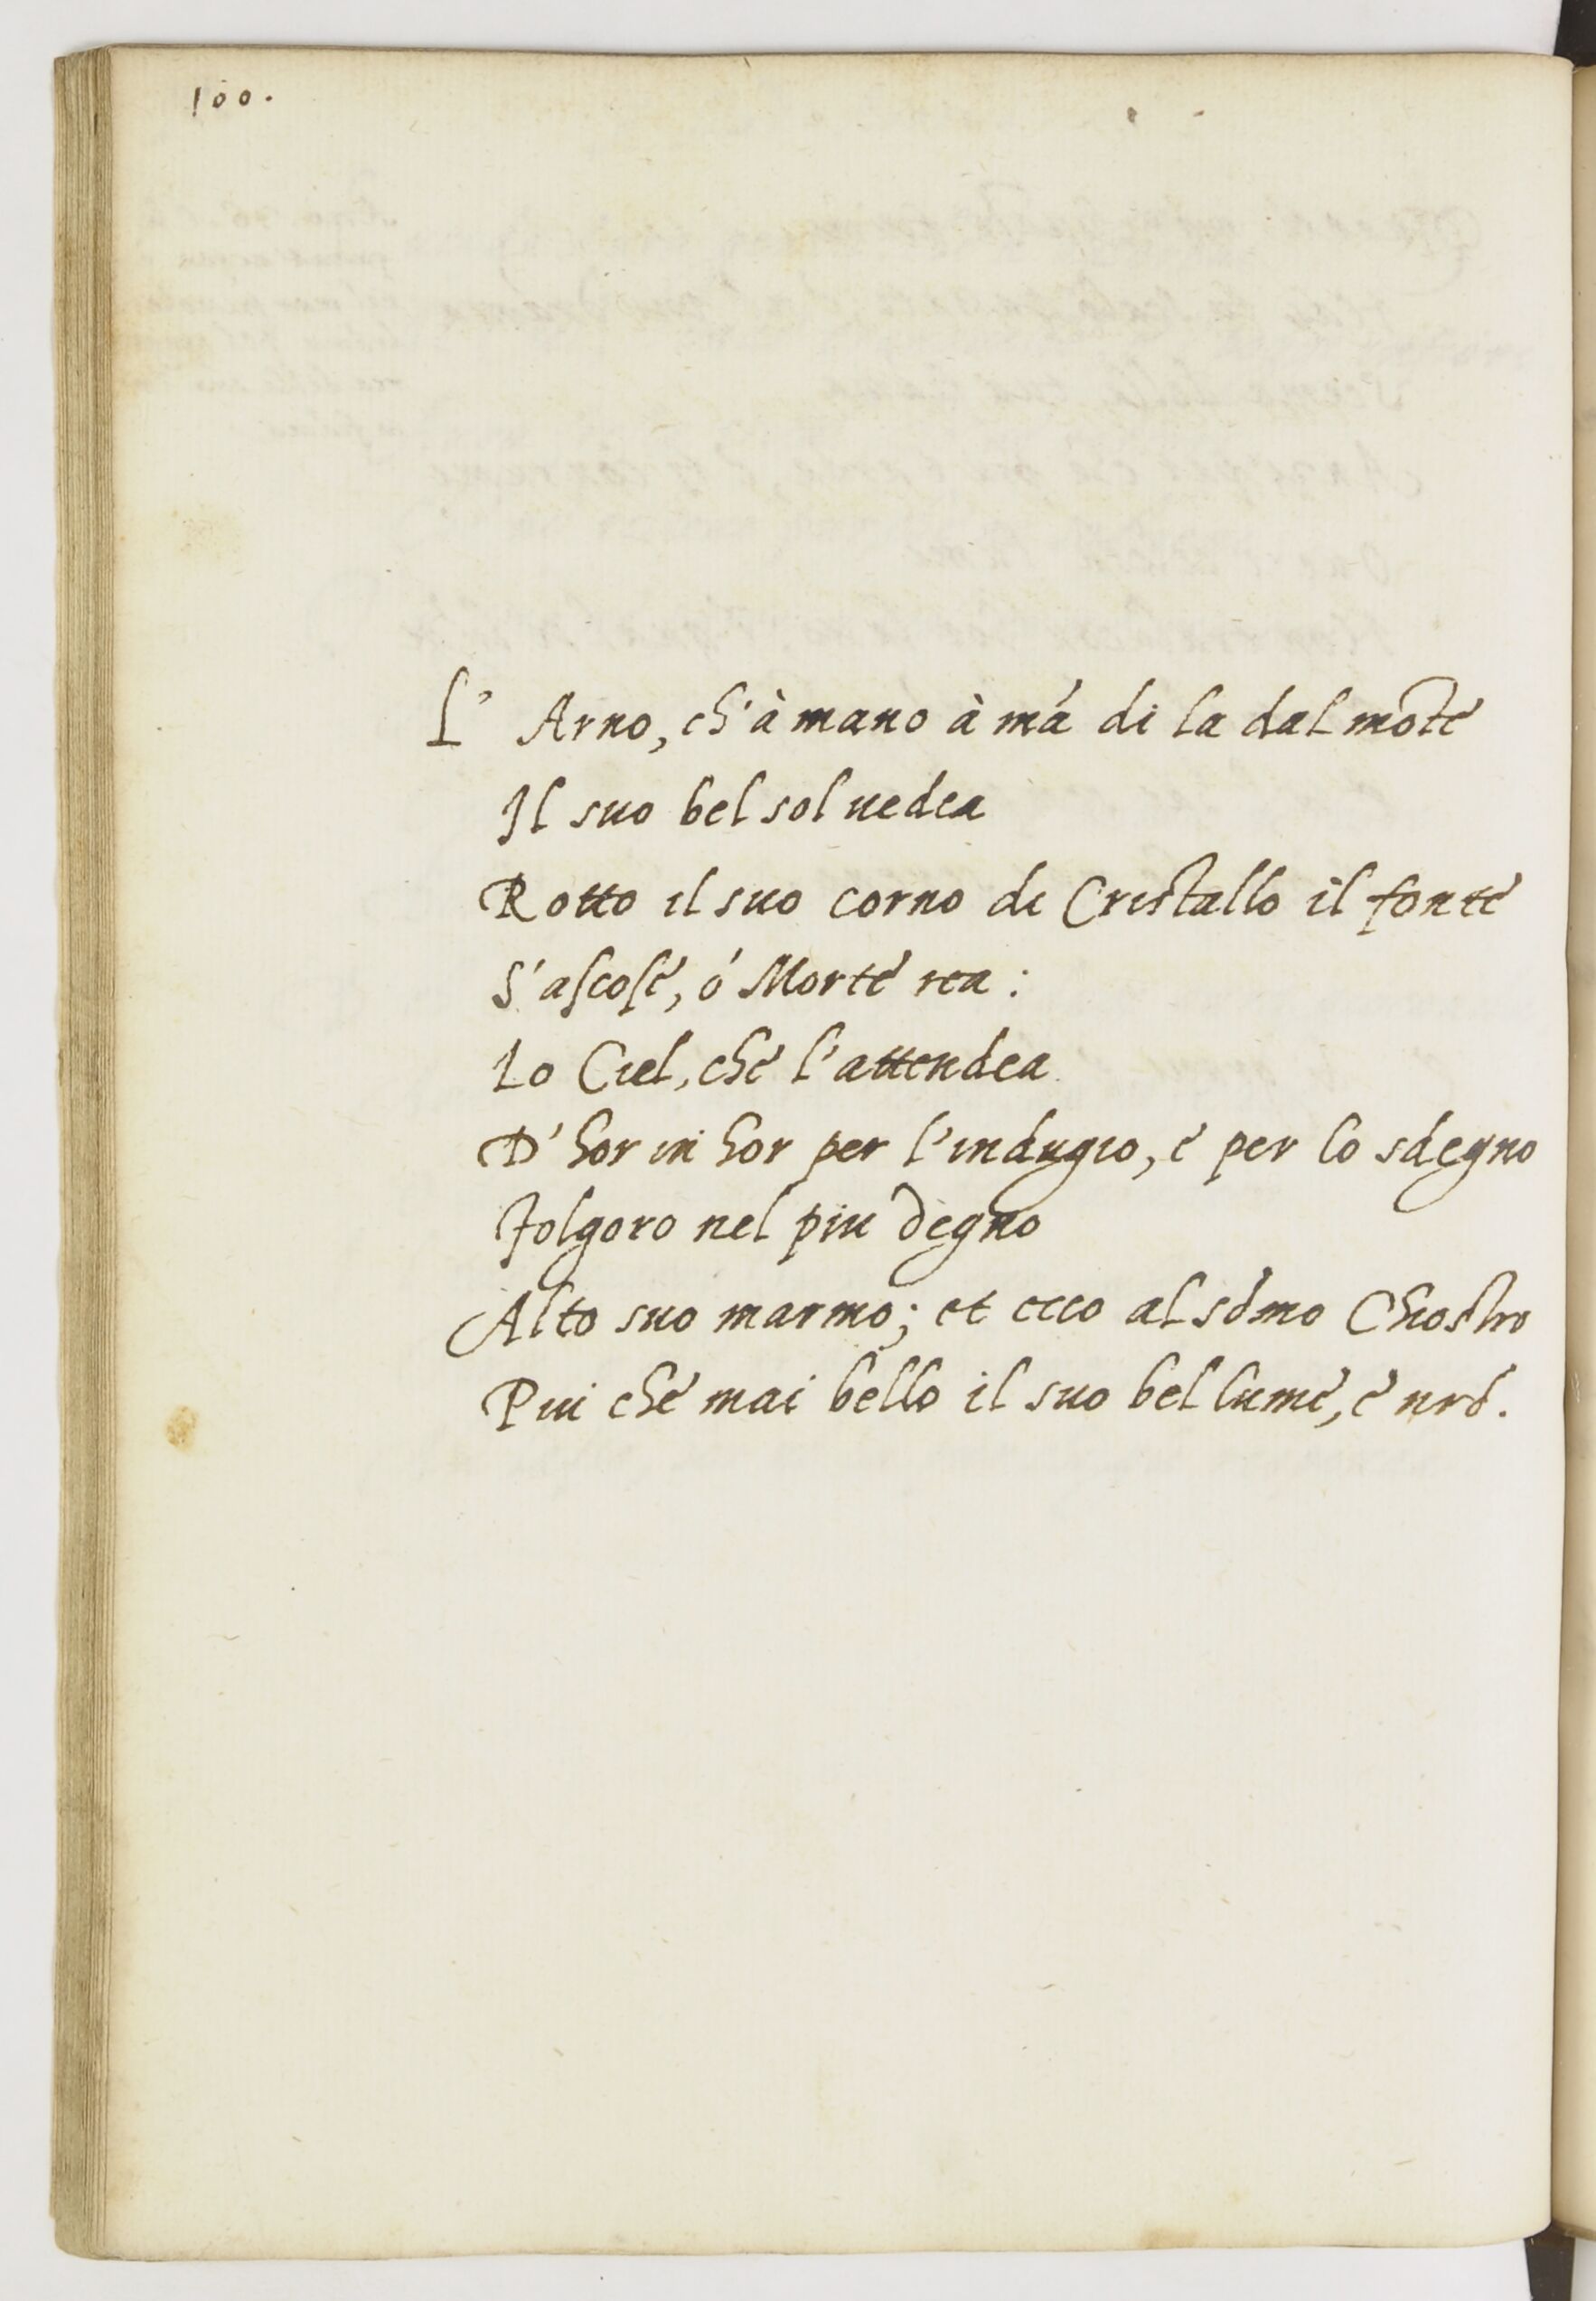 100.
L' Arno, ch'à mano à mā di la dal mōte
Il suo bel sol uedea
Rotto il suo corno di Cristallo il fonte
S'ascose, ó Morte rea:
Lo Ciel, che l'attendea
D'hor in hor per l'indugio, e per lo sdegno
Folgoro nel piu degno
Alto suo marmo; et ecco al sōmo Chiostro
Piu che mai bello il suo bel lume, e nrō.